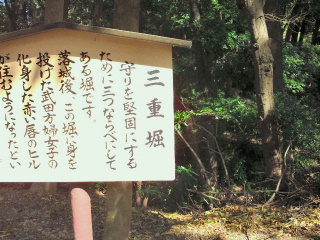 三重堀
守りを堅固にする
ために三つならべにして
ある堀です。
落城後、この堀に身を
投げた武田方婦女子の
化身した赤い唇のヒル
が住むようになったとい